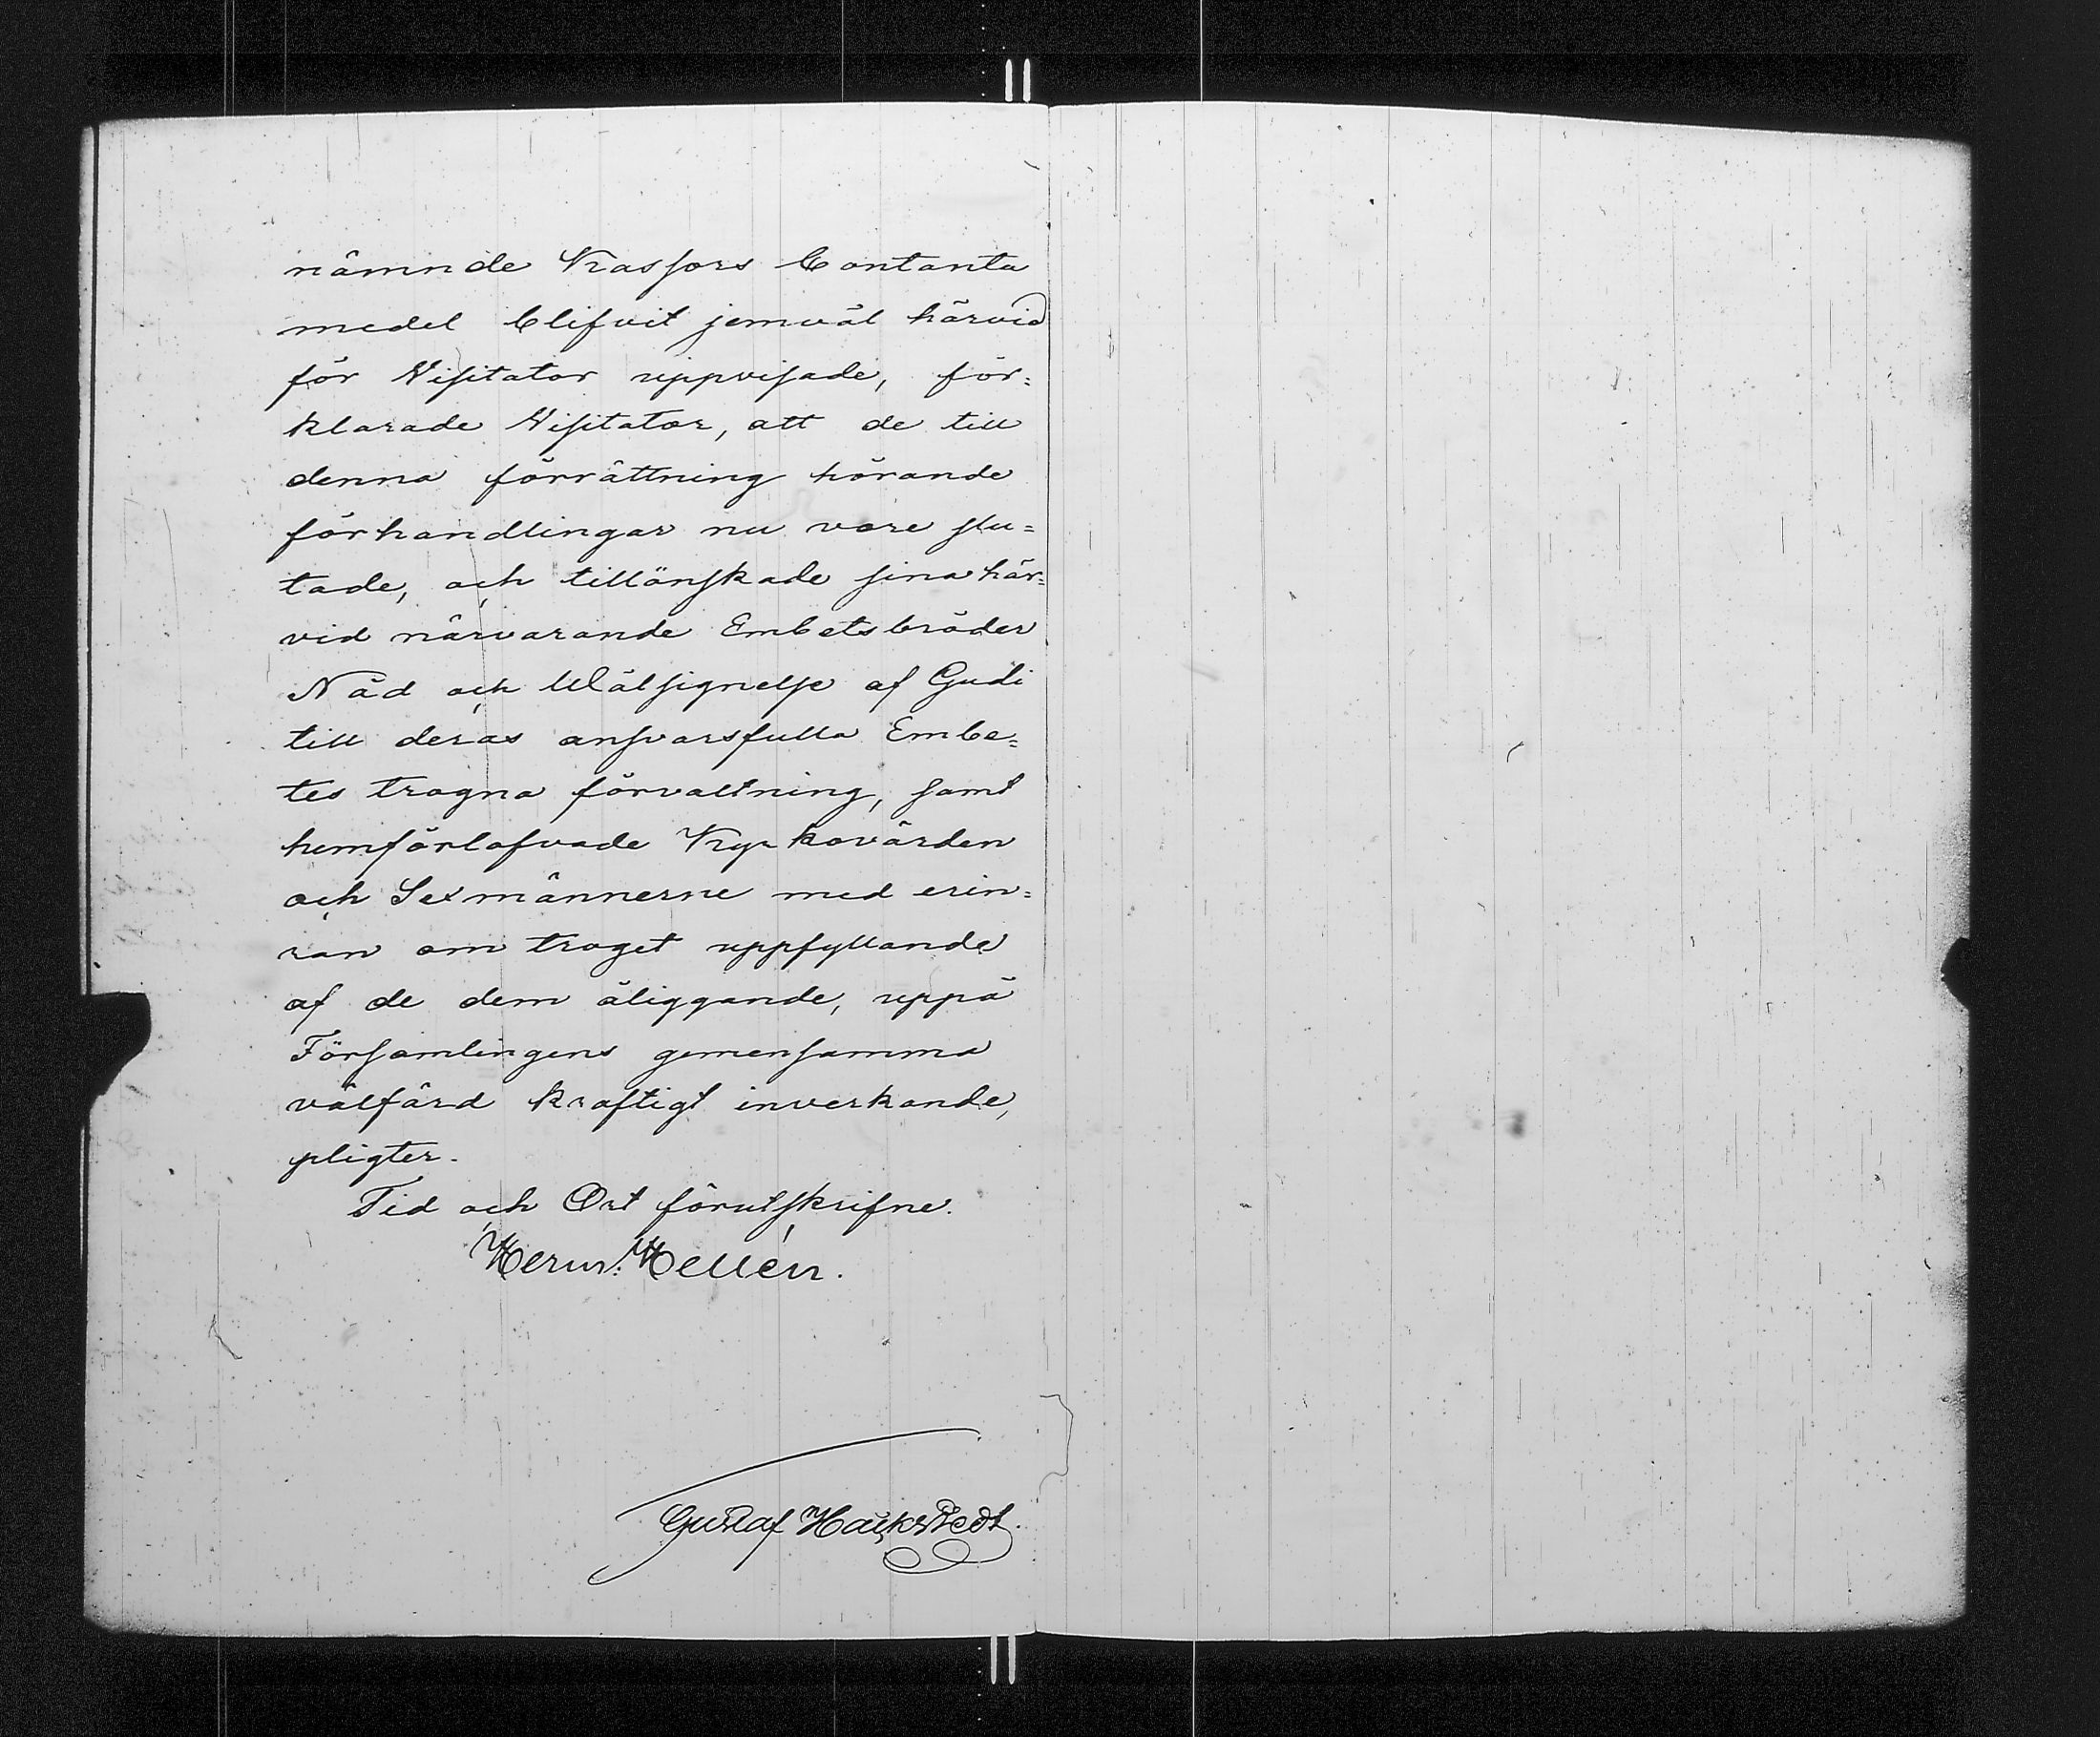 nämnde Kassors Contanta
medel blifvit jemväl härvid
för Visitator uppvisade, för=
klarade Visitator, att de till
denna förrättning hörande
förhandlingar nu vore slu=
tade, och tillönskade sina här=
vid närvarande Embetsbröder
Nåd och Wälsignelse af Gudi
till deras ansvarsfulla Embe=
tes trogna förvaltning, samt
hemförlofvade Kyrkovärden
och Sexmännerne med erin=
ran om troget uppfyllande
af de dem åliggande, uppå
Församlingens gemensamma
välfärd kraftigt inverkande,
pligter.
Tid och Ort förutskrifne.
Herm: Hellén.
Gustaf Hackstedt.